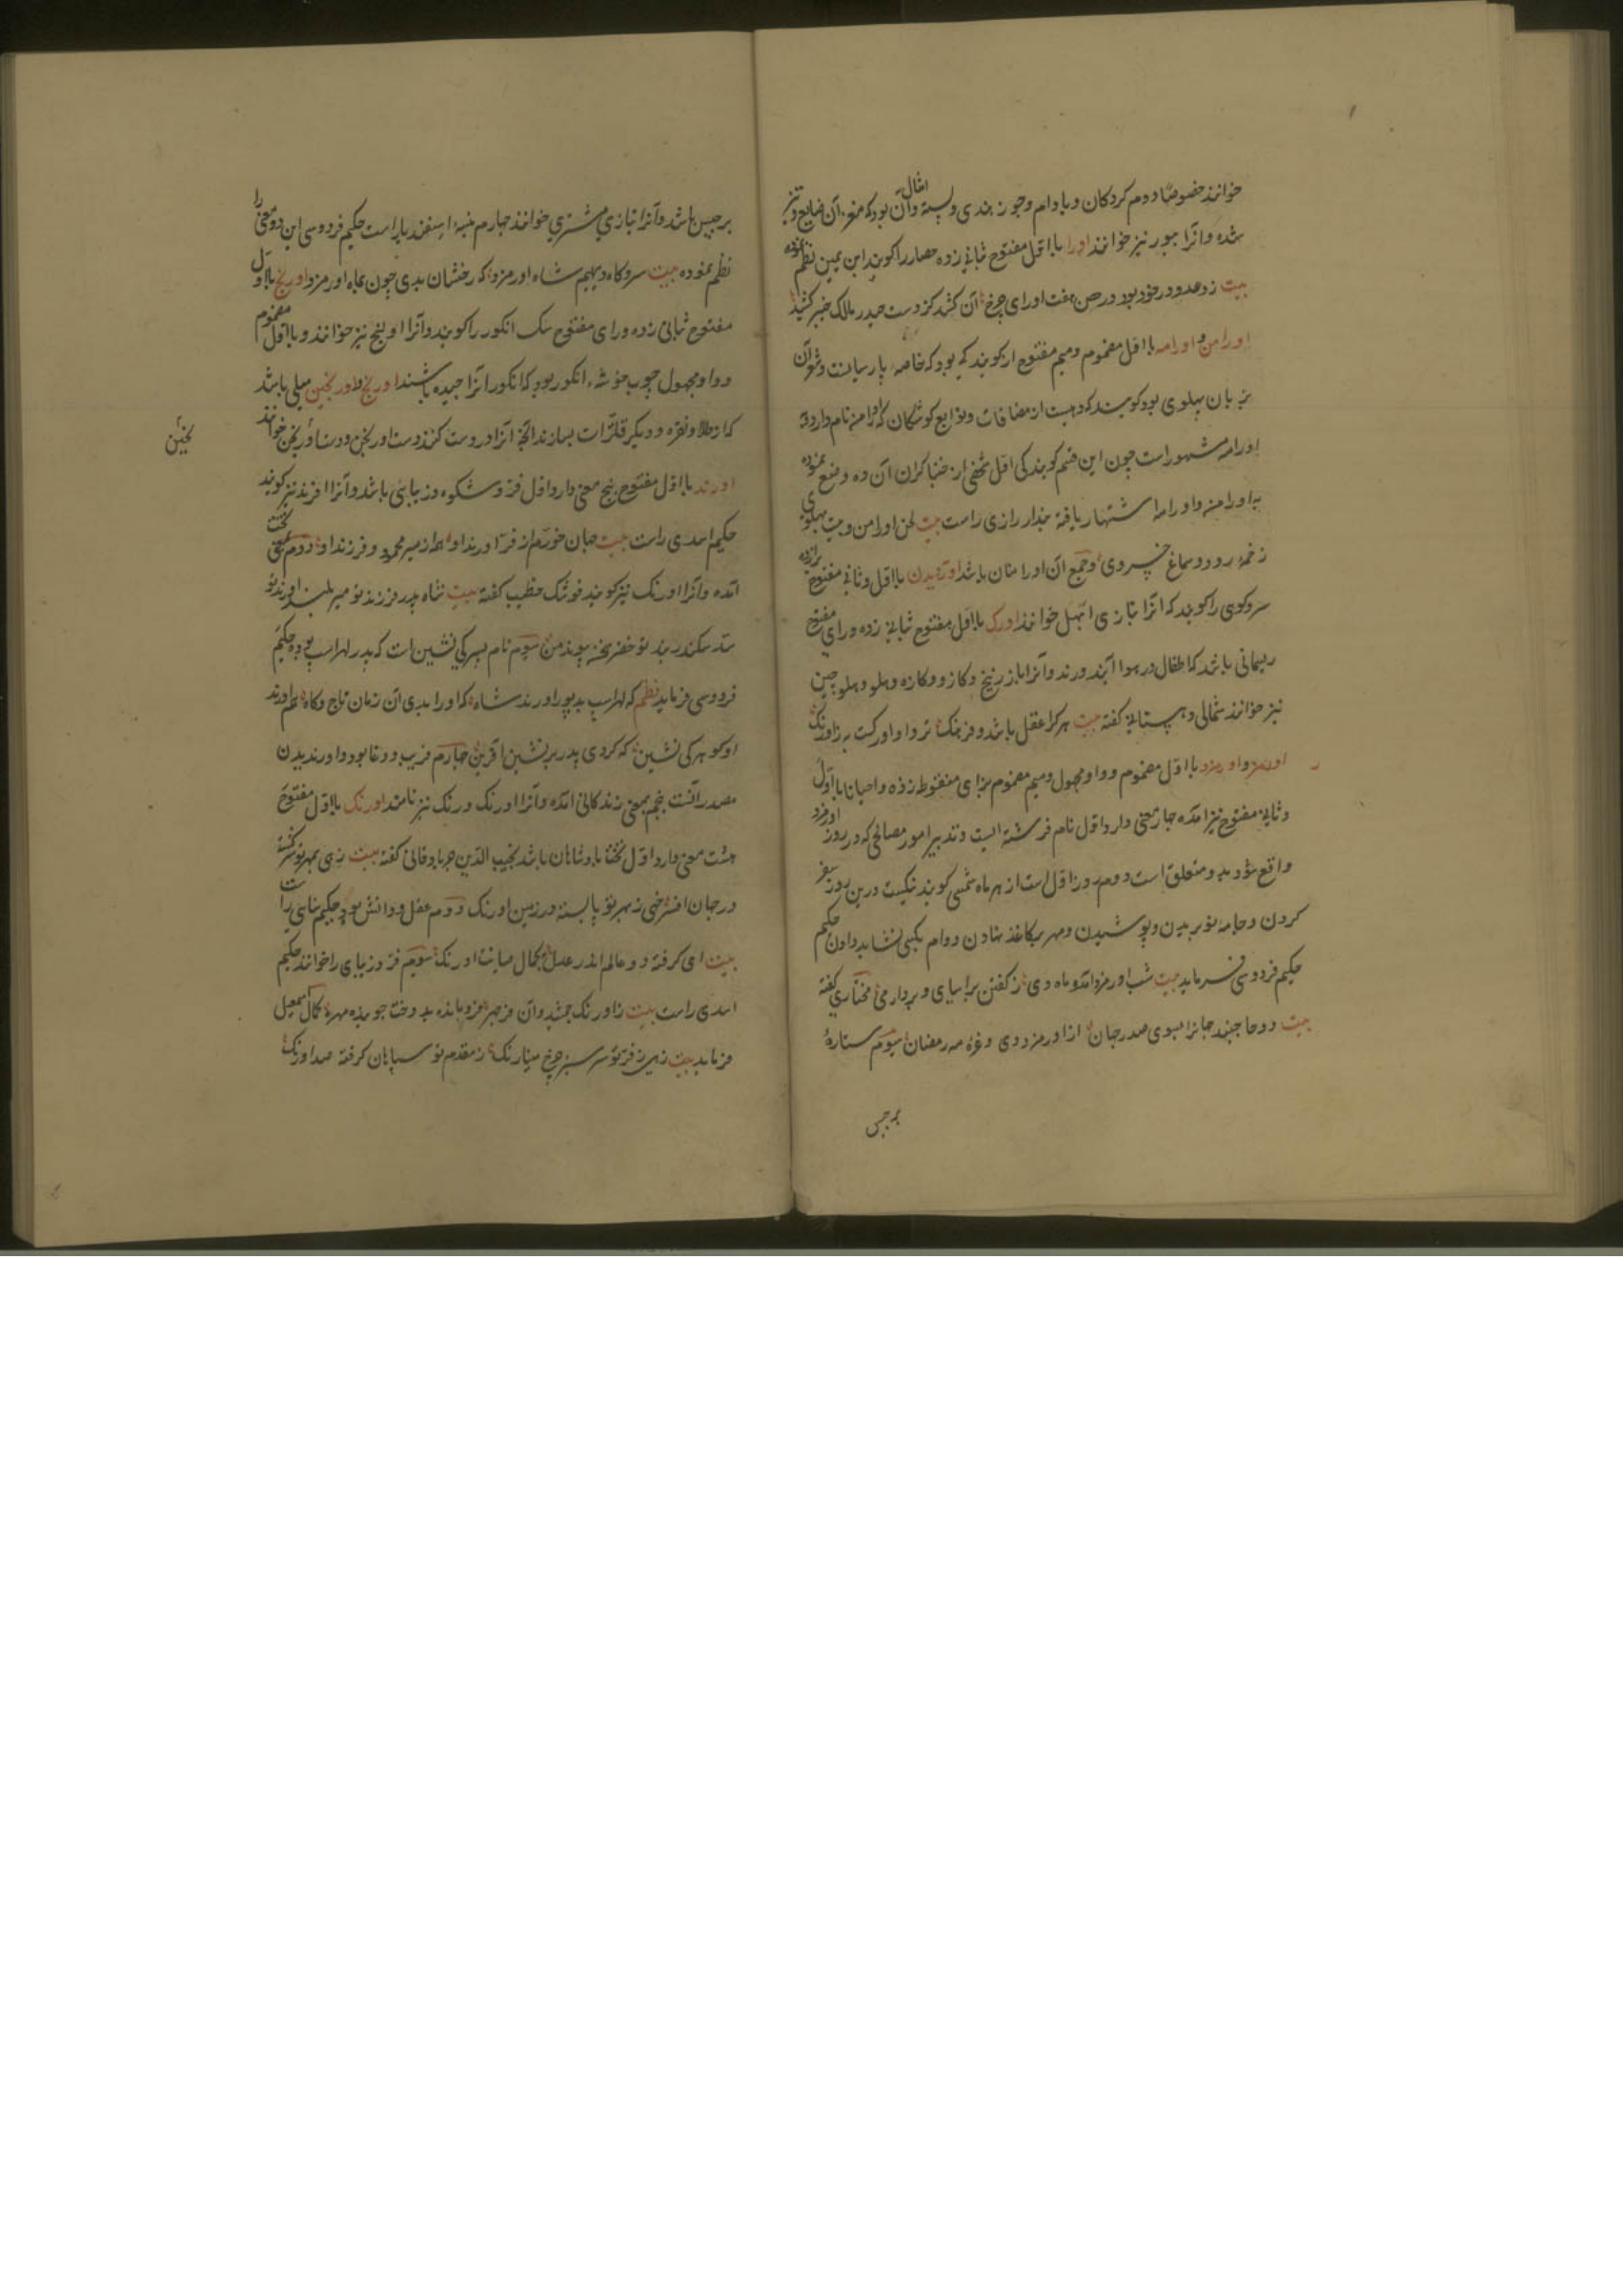 خوانند خصوصا دوم کردکان و بادام و جوز هندی و پسته و امثال آن بود که مغز آن ضایع و تیز
شده و آنرا بیور نیز خوانند اورا با اول مفتوح ثبانی زده حصار را کویند ابن یمین نظم نموده
بیت زو عدو در خود بود در حصن هفت اورای چرخ آن کشد کز دست حیدر مالک خیبر کشید
اورامن و اورامه با اول مضموم و میم مفتوح ار کویند که بود که خاصه پارسیانست و شعر آن
بزبان پهلوی بود کویند که دهیست از مضافات و توابع کوشکان که اورامن نام دارد و به
اورامه مشهور است چون این قسم کویندکی اول شخصی از خنیاکران آن ده وضع نموده
به اورامنه و اورامه اشتهار یافته بندار رازی راست بیت لحن اورامن و بیت پهلوی
زخمه رود و سماع خسروی و جمع آن اورامنان باشد با اول و ثانی مفتوح
سروکوهی را کویند که آنرا بتازی ابهل خوانند اورک با اول مفتوح ثبانی زده و رای مفتوح
ریسمانی باشد که اطفال در هوا آیند و روند و آنرا باز پیچ و کاز و کازه و هلو و هلوچین
نیز خوانند شمالی دهستانی کفته بیت هر کرا عقل باشد و فرهنک نزد او اورکت به ز اورنک
اورمز و اورمزد با اول مضموم و واو مجهول و میم مضموم بزای منقوط زده و احیان با اول
و ثانی مفتوح نیز آمده چار معنی دارد اول نام فرشته ایست و تدبیر امور مصالحی که در روز اورمزد
واقع شود بدو متعلق است دوم روز اول است از هر ماه شمسی کویند نیکست درین روز سفر
کردن و جامه نو بریدن و پوشیدن و مهر بر کاغذ نهادن و وام بکسی نشاید دادن حکیم
حکیم فردوسی فرماید بیت شب اورمزد آمد و ماه دی ز کفتن برآسای و بردار می مختاری کفته
بیت دو حاجبند جانرا بسوی صدر جهان از اورمزد دی و غره مه رمضان سیوم ستاره
برجیس
برجیس باشد و آنرا بتازی مشتری خوانند چهارم نبیه اسفندیار است حکیم فردوسی این دو معنی را
نظم نموده بیت سر و کاه و دیهیم شاه اورمزد که رخشان بدی چون بماه اورمزد اورنج با اول
مفتوح ثبانی زده و رای مفتوح سک انکور را کویند و آنرا اولنج نیز خوانند و با اول مضموم
و واو مجهول چوب خوشه انکور بود که انکور آنرا چیده باشند اورنج و اورنجین میلی باشد
که از طلا و نقره و دیکر فلزات بسازند آنچه آنرا در دست کنند دست اورنجن و دست اورنجن خوانند
نجین
اورند با اول مفتوح پنج معنی دارد اول فر و شکوه و زیبایی باشد و آنرا افرند نیز کویند
حکیم اسدی راست بیت جهان خورم از فر اورند او هم از میر محمود و فرزند او دوم تخت
آمده و آنرا اورنک نیز کویند قوشک خطیب کفته بیت شاه پدر فرزند تو میر بلند اورند تو
سد سکندر بند تو خضر سوم نام پسر کی نشین است که پدر لهراسپ بود حکیم
فردوسی فرماید نظم که لهراسپ بد پور اورند شاه که او را بدی آن زمان تاج و کاه هم اورند
او کوهر کی نشین که کردی پدر بر پشین آفرین چهارم فریب و دغا بود و اورندیدن
مصدر آنست پنجم بمعنی زندکانی آمده و آنرا اورنک و رنک نیز نامند اورنک با اول مفتوح
هشت معنی دارد اول تخت پادشاهان باشد نجیب الدین جرباذقانی کفته بیت زهی بمهر تو سر کشته
در جهان افسر خهی ز بهر تو پا بسته در زمین اورنک دوم عقل و دانش بود حکیم سنایی راست
بیت ای کرفته دو عالم اندر عدل بکمال صیانت اورنک سیوم فر و زیبایی را خوانند حکیم
اسدی راست بیت ز اورنک جمشید وان فر و چهر فرو مانده بد دخت جوینده مهر کمال اسمعیل
فرماید بیت زهی ز فر تو سر سبز چرخ مینا رنک ز مقدم تو سپاهان کرفته صد اورنک